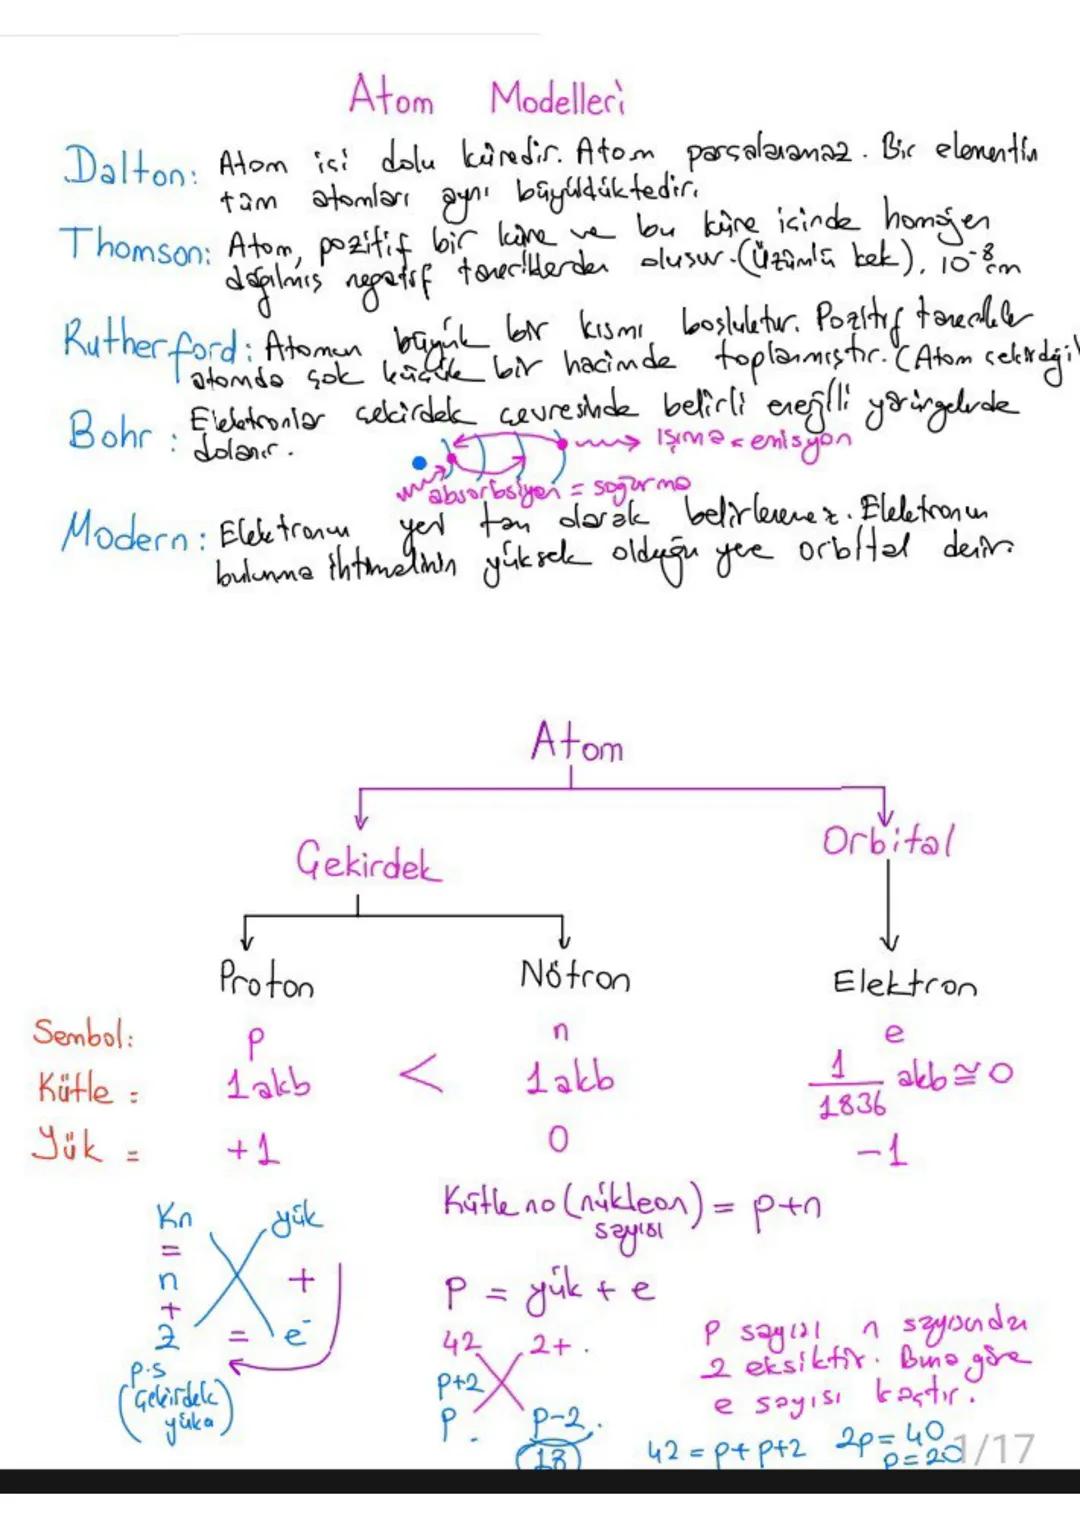 Atom Modelleri
Dalton: Atom içi dolu küredir. Atom parçalanamaz. Bir elementin
tüm atomları aynı büyüklüktedir.
Thomson: Atom, pozitif bir küre ve bu küre içinde homojen
dağılmış negatif taneciklerden oluşur. (Üzümlü kek). 10⁻⁸ cm
Rutherford: Atomun büyük bir kısmı boşluktur. Pozitif tanecikler
atomda çok küçük bir hacimde toplanmıştır. (Atom çekirdeği
Bohr: Elektronlar çekirdek çevresinde belirli enerjili yörüngelerde
dolanır.
Işıma = emisyon
absorbsiyon = soğurma
Modern: Elektronun yeri tam olarak belirlenemez. Elektronun
bulunma ihtimalinin yüksek olduğu yere orbital denir.
Atom
Çekirdek Orbital
Proton Nötron Elektron
Sembol: p n e
Kütle: 1akb < 1akb 1/1836 akb ≅ 0
Yük = +1 0 -1
Kn yük
=
n +
+
Z = e⁻
p.s
(Çekirdek
yükü)
Kütle no (nükleon) = p+n
sayısı
P = yük + e
42 2+.
p+2
p. p-2.
18
p sayısı n sayısından
2 eksiktir. Buna göre
e sayısı kaçtır.
42 = p+p+2 2p = 40
p = 20
1/17